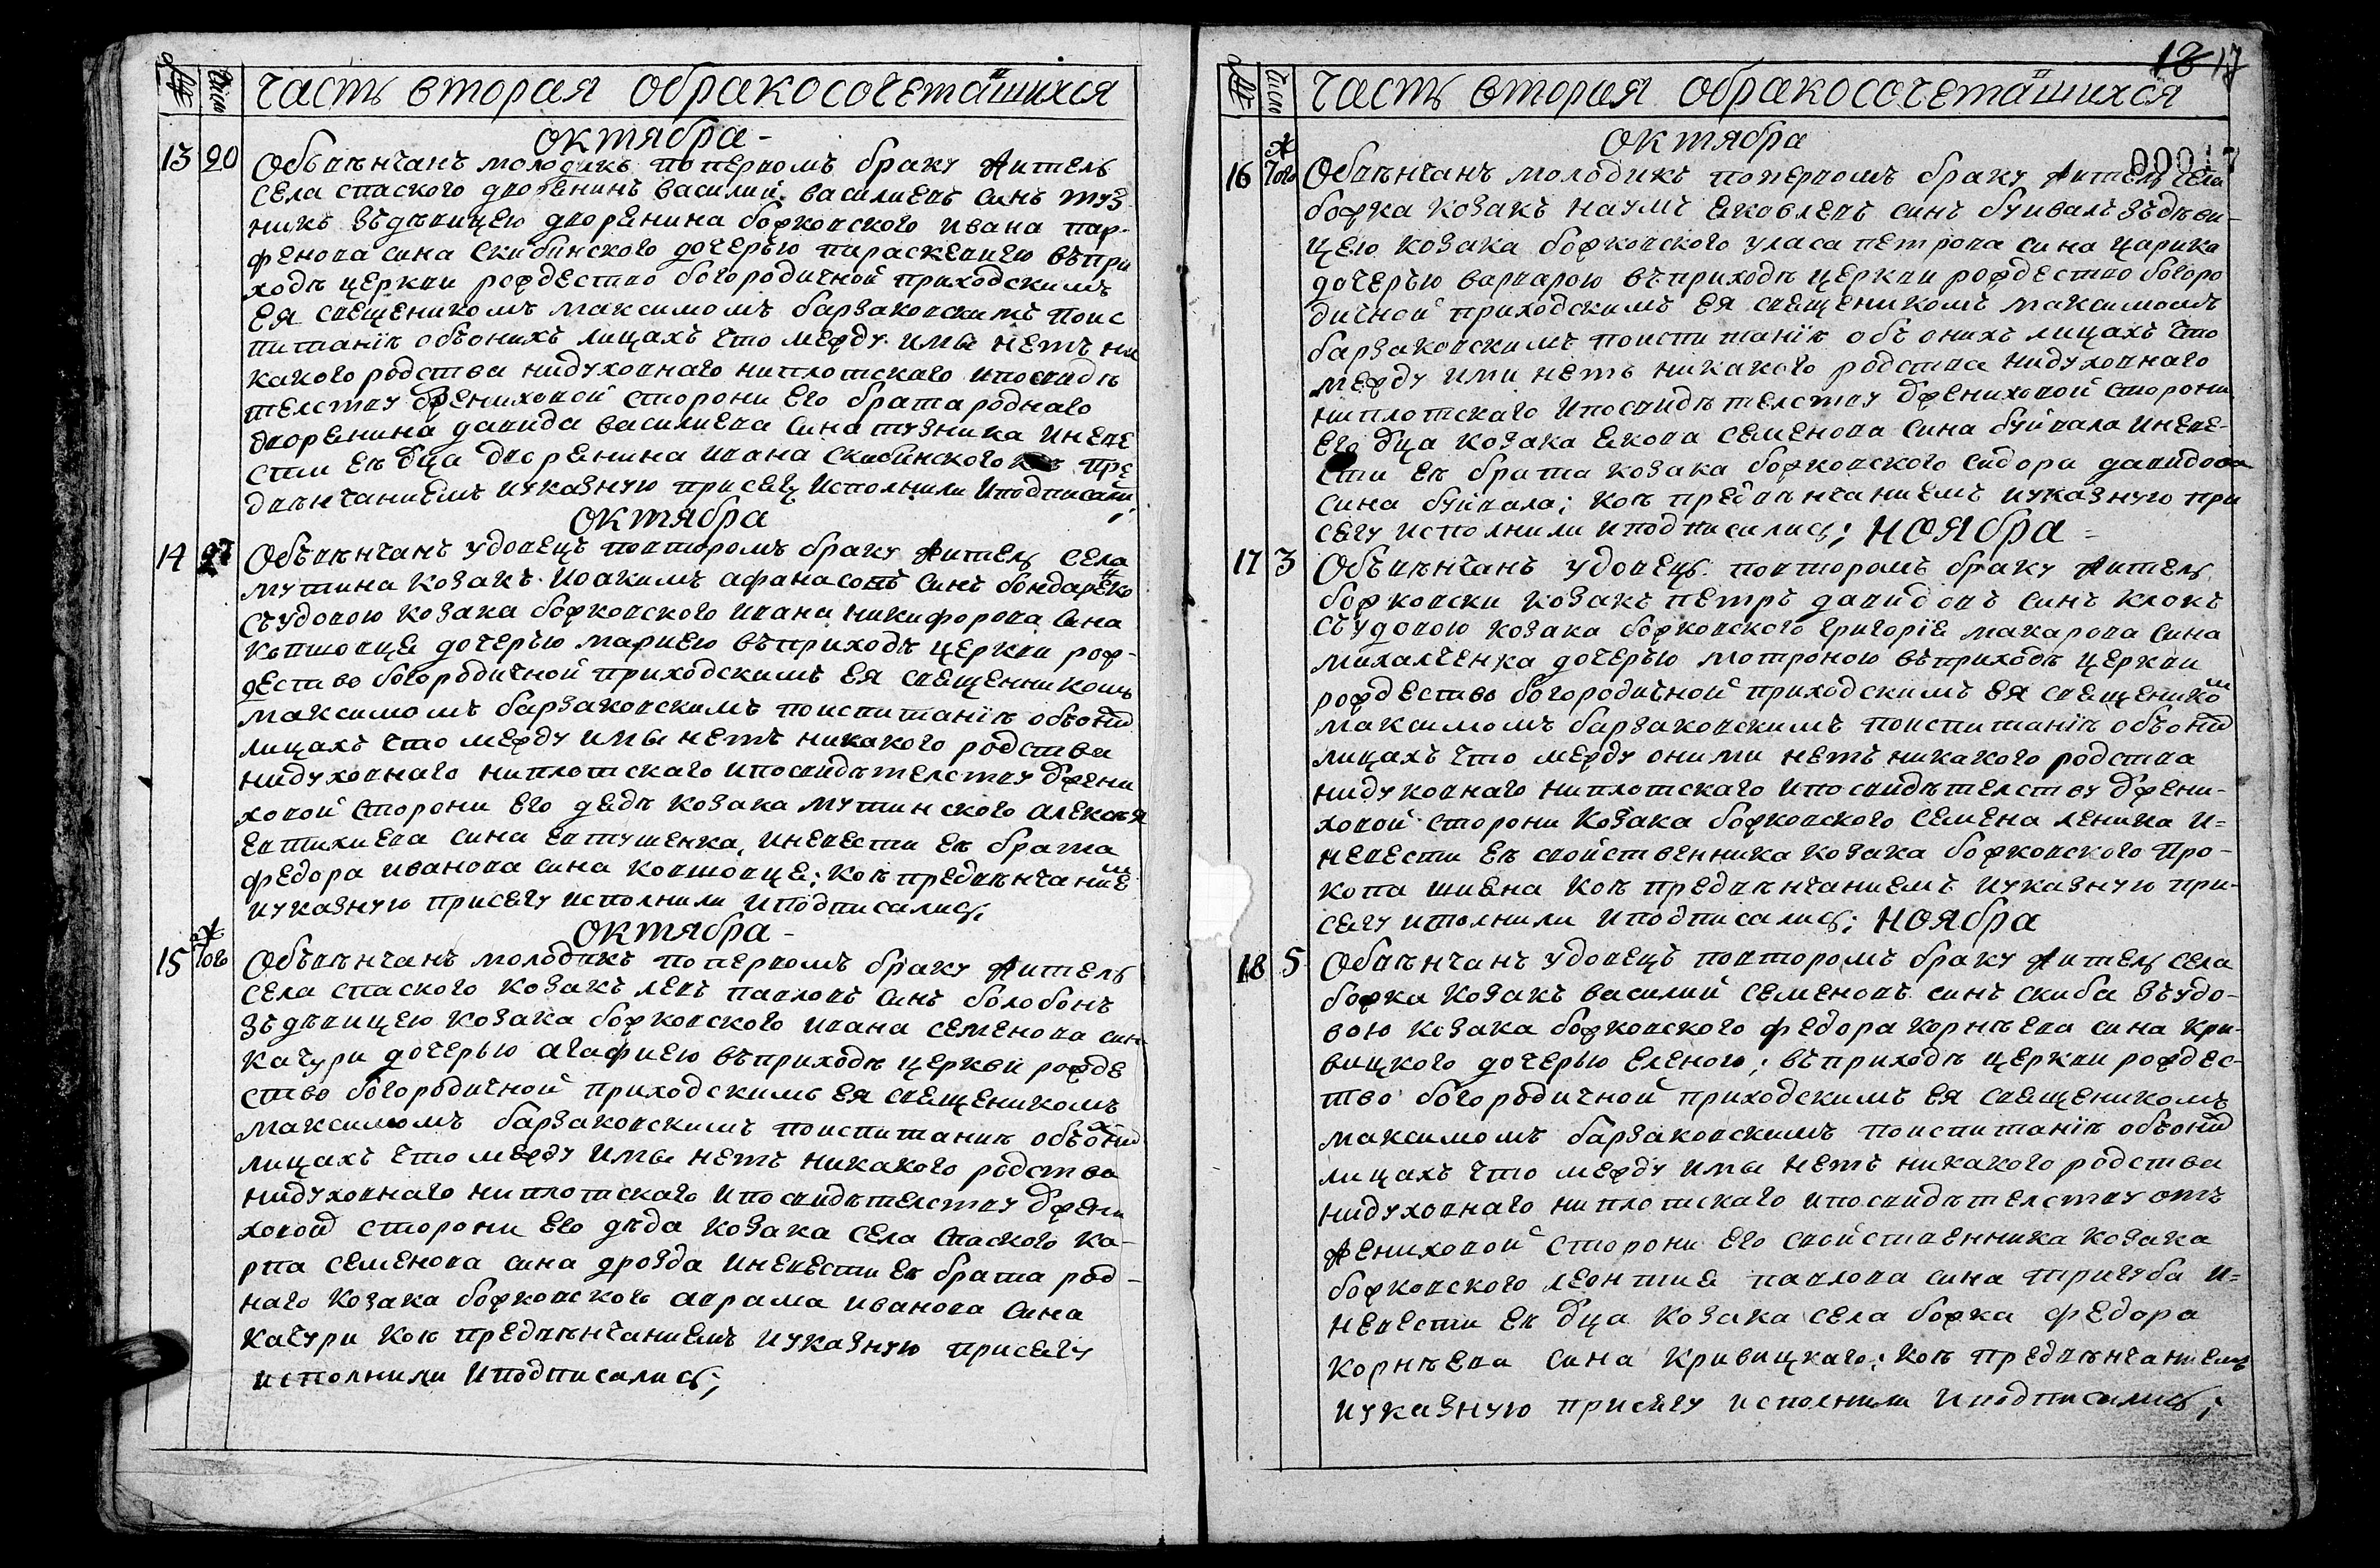 № Число Часть вторая обракосочеташихся
октября
13 20 Обвѣнчанъ молодикъ поперввомъ браку житель
села спаского дворенинъ василий василиевъ синъ туз-
никъ зъдѣвицею дворенина божковского ивана пар-
фенова сина скибинского дочерью параскевиею въпри
ходѣ церкви рождество богородичной приходскимъ
ея свещеникомъ максимомъ барзаковскимъ поис
питаніѣ объонихъ лицахъ что между имы нетъ ни
какого родства нидуховнаго ниплотскаго ипосвидѣ
телству ѿжениховой сторони его брата роднаго
дворенина давида василиева сина тузника иневе
сти еѣ ѿца дворенина ивана скибинского кое пре
двѣнчаниемъ иуказную присягу исполнили иподписались;
октября
14 27 Объвѣнчанъ удовецъ повторомъ браку житель села
мутина козакъ иоакимъ афанасовъ синъ бондаренко
съудовою козака божковского ивана никифорова сина
ковтовца дочерью мариею въприходѣ церкви рож-
дество богородичной приходскимъ ея свещенникомъ
максимомъ барзаковскимъ поиспитаніѣ объоних
лицахъ что между имы нетъ никакого родства
нидуховнаго ниплотскаго ипосвидѣтелству ѿжени
ховой сторони его дядѣ козака мутинского алексѣя
евтихиева сина евтушенка, иневести еѣ брата
федора иванова сина ковтовца; коѣ предвѣнчанием
иуказную присягу исполнили иподписались;
октября
15 Того ж Объвѣнчанъ молодикъ поперввомъ браку житель
села спаского козакъ левъ павловъ синъ болобонъ
зъдѣвицею козака божковского ивана семенова сина
качури дочерью агафиею въприходѣ церкви рожде
ство богородичной приходскимъ ея свещеникомъ
максимомъ барзаковскимъ поиспитаниѣ объоних
лицахъ что между имы нетъ никакого родства
нидуховнаго ниплотскаго ипосвидѣтелству ѿжени
ховой сторони его дѣда козака села спаского ка-
рпа семенова сина дрозда иневести еѣ брата род-
наго козака божковского аврама иванова сина
качури коѣ предвѣнчаниемъ иуказную присягу
исполнили иподписались;
18 17
№ Число Часть вторая обракосочеташихся
октября
00017
16 Того ж Обвѣнчанъ молодикъ поперввомъ браку житель села
божка козакъ наумъ яковлевъ синъ буивалъ зъдѣви-
цею козака божковского уласа петрова сина царика
дочерью варварою въприходѣ церкви рождество богоро
дичной приходскимъ ея свещеникомъ максимомъ
барзаковскимъ поиспитаніѣ объ онихъ лицахъ что
между ими нетъ никакого родства нидуховнаго
ниплотскаго ипосвидѣтелству ѿжениховой сторони
его ѿца козака якова семенова сина буйвала иневе-
сти еѣ брата козака божковского сидора давидова
сина буйвала; коѣ предвѣнчаниемъ иуказную при
сягу исполнили иподписались; ноября
17 3 Объвѣнчанъ удовецъ повторомъ браку житель
божковски козакъ петръ давидовъ синъ клокъ
съудовою козака божковского григорія макарова сина
михалченка дочерью мотроною въприходѣ церкви
рождество богородичной приходскимъ ея свещеником
максимомъ барзаковскимъ поиспитаніѣ объоних
лицахъ что между оними нетъ никакого родства
нидуховнаго ниплотскаго ипосвидѣтелству ѿжени-
ховой сторони козака божковского семена леника и=
невести еѣ свойственника козака божковского про-
копа шияна коѣ предвѣнчаниемъ иуказную при-
сягу исполнили иподписались; ноября
18 5 Обвѣнчанъ удовецъ повторомъ браку житель села
божка козакъ василий семеновъ синъ скиба зъудо-
вою козака божковского федора корнѣева сина кри-
вицкого дочерью еленою; въприходѣ церкви рождес-
тво богородичной приходскимъ ея свещеникомъ
максимомъ барзаковскимъ поиспитаніѣ объоних
лицахъ что между имы нетъ никакого родства
нидуховнаго ниплотскаго ипосвидѣтелству отъ
жениховой сторони его свойственника козака
божковского леонтия павлова сина тригуба и=
невести еѣ ѿца козака села божка федора
корнѣева сина кривицкаго; коѣ предвѣнчаниемъ
иуказную присягу исполнили иподписались;